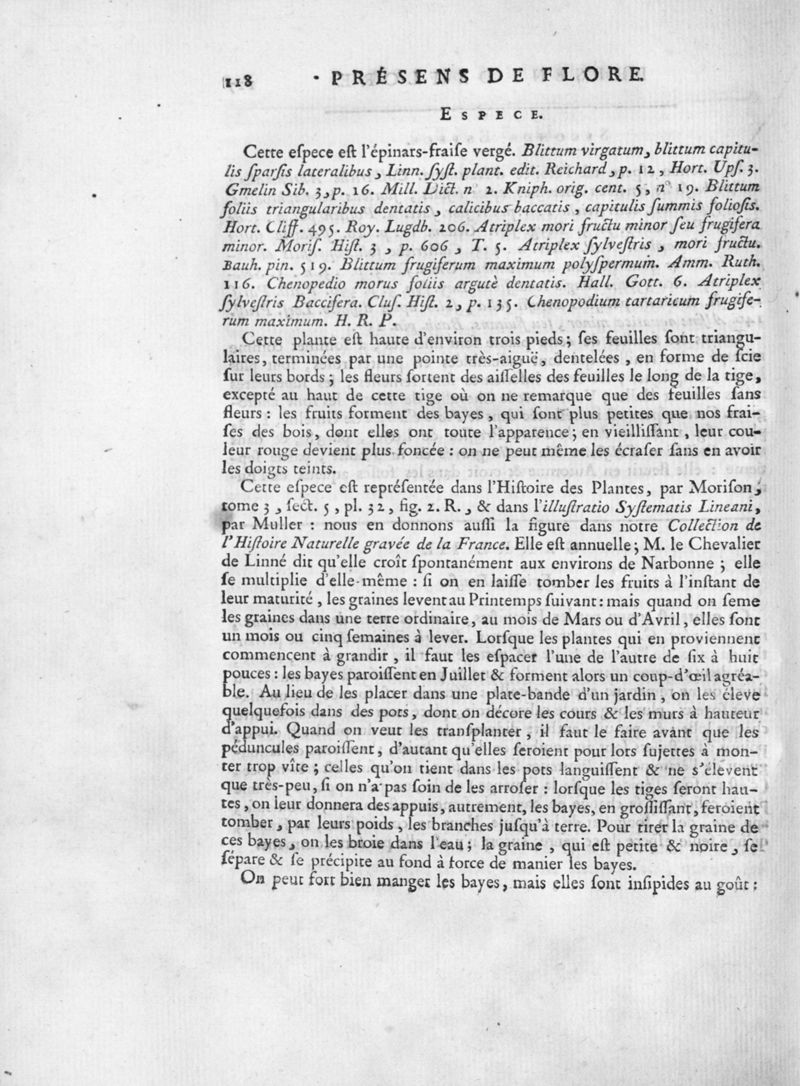 118 • PRÉSENS DE FLORE.
ESPECE.
Cette eſpece eſt l'épinars-fraiſe vergé. Blittum virgatum, blittum capitu-
lis ſparſis lateralibus, Linn. ſyſt. plant. edit. Reichard, p. 12, Hort. Upſ. 3.
Gmelin Sib. 3, p. 16. Mill. Dict. n 2. Kniph. orig. cent. 5, n° 19. Blittum
foliis triangularibus dentatis, calicibus baccatis, capitulis ſummis folioſis.
Hort. Cliff. 495. Roy. Lugdb. 206. Atriplex mori fructu minor ſeu frugifera
minor. Moriſ. Hiſt. 3, p. 606, T. 5. Atriplex ſylveſtris, mori fructu.
Bauh. pin. 519. Blittum frugiferum maximum polyſpermum. Amm. Ruth.
116. Chenopedio morus foliis argutè dentatis. Hall. Gott. 6. Atriplex
ſylveſtris Baccifera. Cluſ. Hiſt. 2, p. 135. Chenopodium tartaricum frugife-
rum maximum. H. R. P.
Cette plante eſt haute d'environ trois pieds; ſes feuilles ſont triangu-
laires, terminées par une pointe très-aiguë, dentelées, en forme de ſcie
ſur leurs bords; les fleurs ſortent des aiſſelles des feuilles le long de la tige,
excepté au haut de cette tige où on ne remarque que des feuilles ſans
fleurs: les fruits forment des bayes, qui ſont plus petites que nos frai-
ſes des bois, dont elles ont toute l'apparence; en vieilliſſant, leur cou-
leur rouge devient plus foncée: on ne peut même les écraſer ſans en avoir
les doigts teints.
Cette eſpece eſt repréſentée dans l'Hiſtoire des Plantes, par Moriſon,
tome 3, ſect. 5, pl. 32, fig. 2. R., & dans l'illuſtratio Syſtematis Lineani,
par Muller: nous en donnons auſſi la figure dans notre Collection de
l'Hiſtoire Naturelle gravée de la France. Elle eſt annuelle; M. le Chevalier
de Linné dit qu'elle croît ſpontanément aux environs de Narbonne; elle
ſe multiplie d'elle-même: ſi on en laiſſe tomber les fruits à l'inſtant de
leur maturité, les graines levent au Printemps ſuivant: mais quand on ſeme
les graines dans une terre ordinaire, au mois de Mars ou d'Avril, elles ſont
un mois ou cinq ſemaines à lever. Lorſque les plantes qui en proviennent
commencent à grandir, il faut les eſpacer l'une de l'autre de ſix à huit
pouces: les bayes paroiſſent en Juillet & forment alors un coup-d'œil agréa-
ble. Au lieu de les placer dans une plate-bande d'un jardin, on les éleve
quelquefois dans des pots, dont on décore les cours & les murs à hauteur
d'appui. Quand on veut les tranſplanter, il faut le faire avant que les
péduncules paroiſſent, d'autant qu'elles ſeroient pour lors ſujettes à mon-
ter trop vîte; celles qu'on tient dans les pots languiſſent & ne s'élevent
que très-peu, ſi on n'a pas ſoin de les arroſer: lorſque les tiges ſeront hau-
tes, on leur donnera des appuis, autrement, les bayes, en groſſiſſant, feroient
tomber, par leurs poids, les branches juſqu'à terre. Pour tirer la graine de
ces bayes, on les broie dans l'eau; la graine, qui eſt petite & noire, ſe
ſépare & ſe précipite au fond à force de manier les bayes.
On peut fort bien manger les bayes, mais elles ſont inſipides au goût: